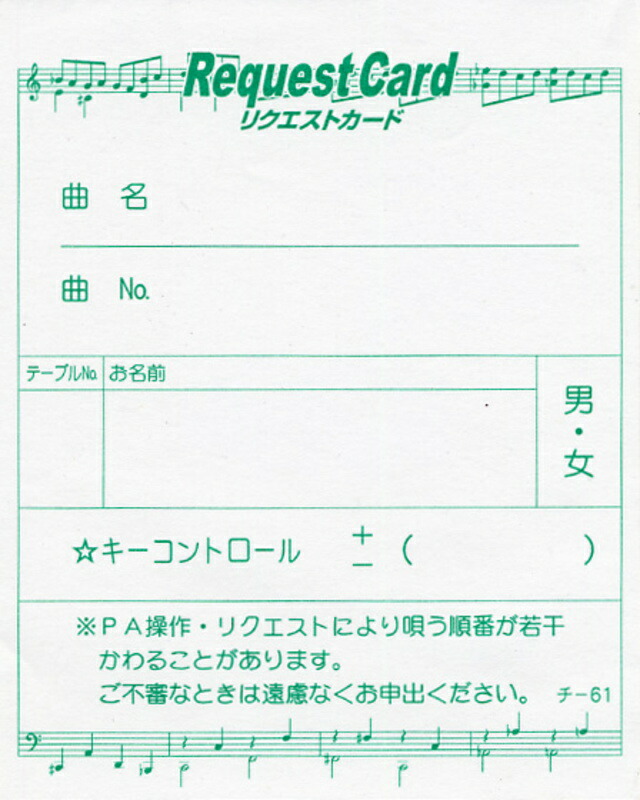 Request Card
リクエストカード
曲 名
曲 No.
テーブルNo. お名前
男・女
☆キーコントロール +− ( )
※PA操作・リクエストにより唄う順番が若干
かわることがあります。
ご不審なときは遠慮なくお申出ください。 チ−61